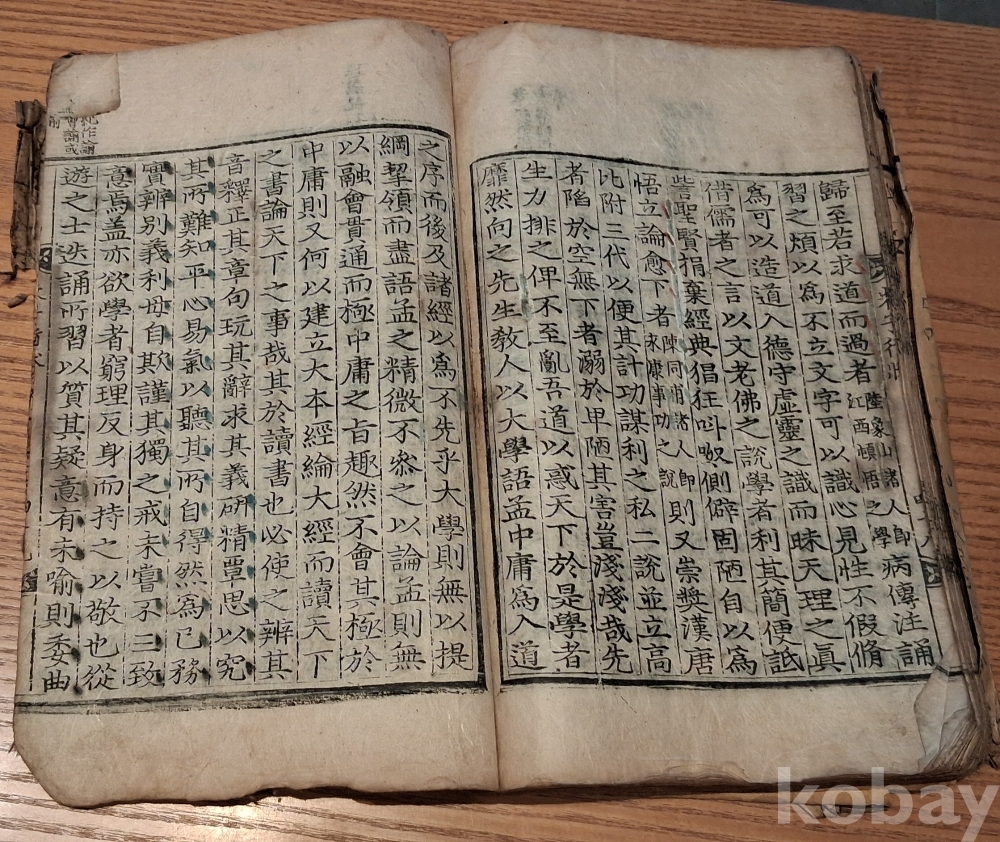 歸至若求道而過者陸象山諸人即江西頓悟之學病傳注誦
習之煩以爲不立文字可以識心見性不假脩
爲可以造道入德守虛靈之識而昧天理之眞
借儒者之言以文老佛之說學者利其簡便詆
訾聖賢捐棄經典猖狂叫呶側僻固陋自以爲
悟立論愈下者陳同甫諸人即永康事功之說則又崇奬漢唐
比附三代以便其計功謀利之私二說並立高
者陷於空無下者溺於卑陋其害豈淺淺哉先
生力排之俾不至亂吾道以惑天下於是學者
靡然向之先生敎人以大學語孟中庸爲入道
之序而後及諸經以爲不先乎大學則無以提
綱挈領而盡語孟之精微不參之以論孟則無
以融會貫通而極中庸之旨趣然不會其極於
中庸則又何以建立大本經綸大經而讀天下
之書論天下之事哉其於讀書也必使之辨其
音釋正其章句玩其辭求其義研精覃思以究
其所難知平心易氣以聽其所自得然爲己務
實辨別義利毋自欺謹其獨之戒未嘗不三致
意焉盖亦欲學者窮理反身而持之以敬也從
遊之士迭誦所習以質其疑意有未喻則委曲
kobay